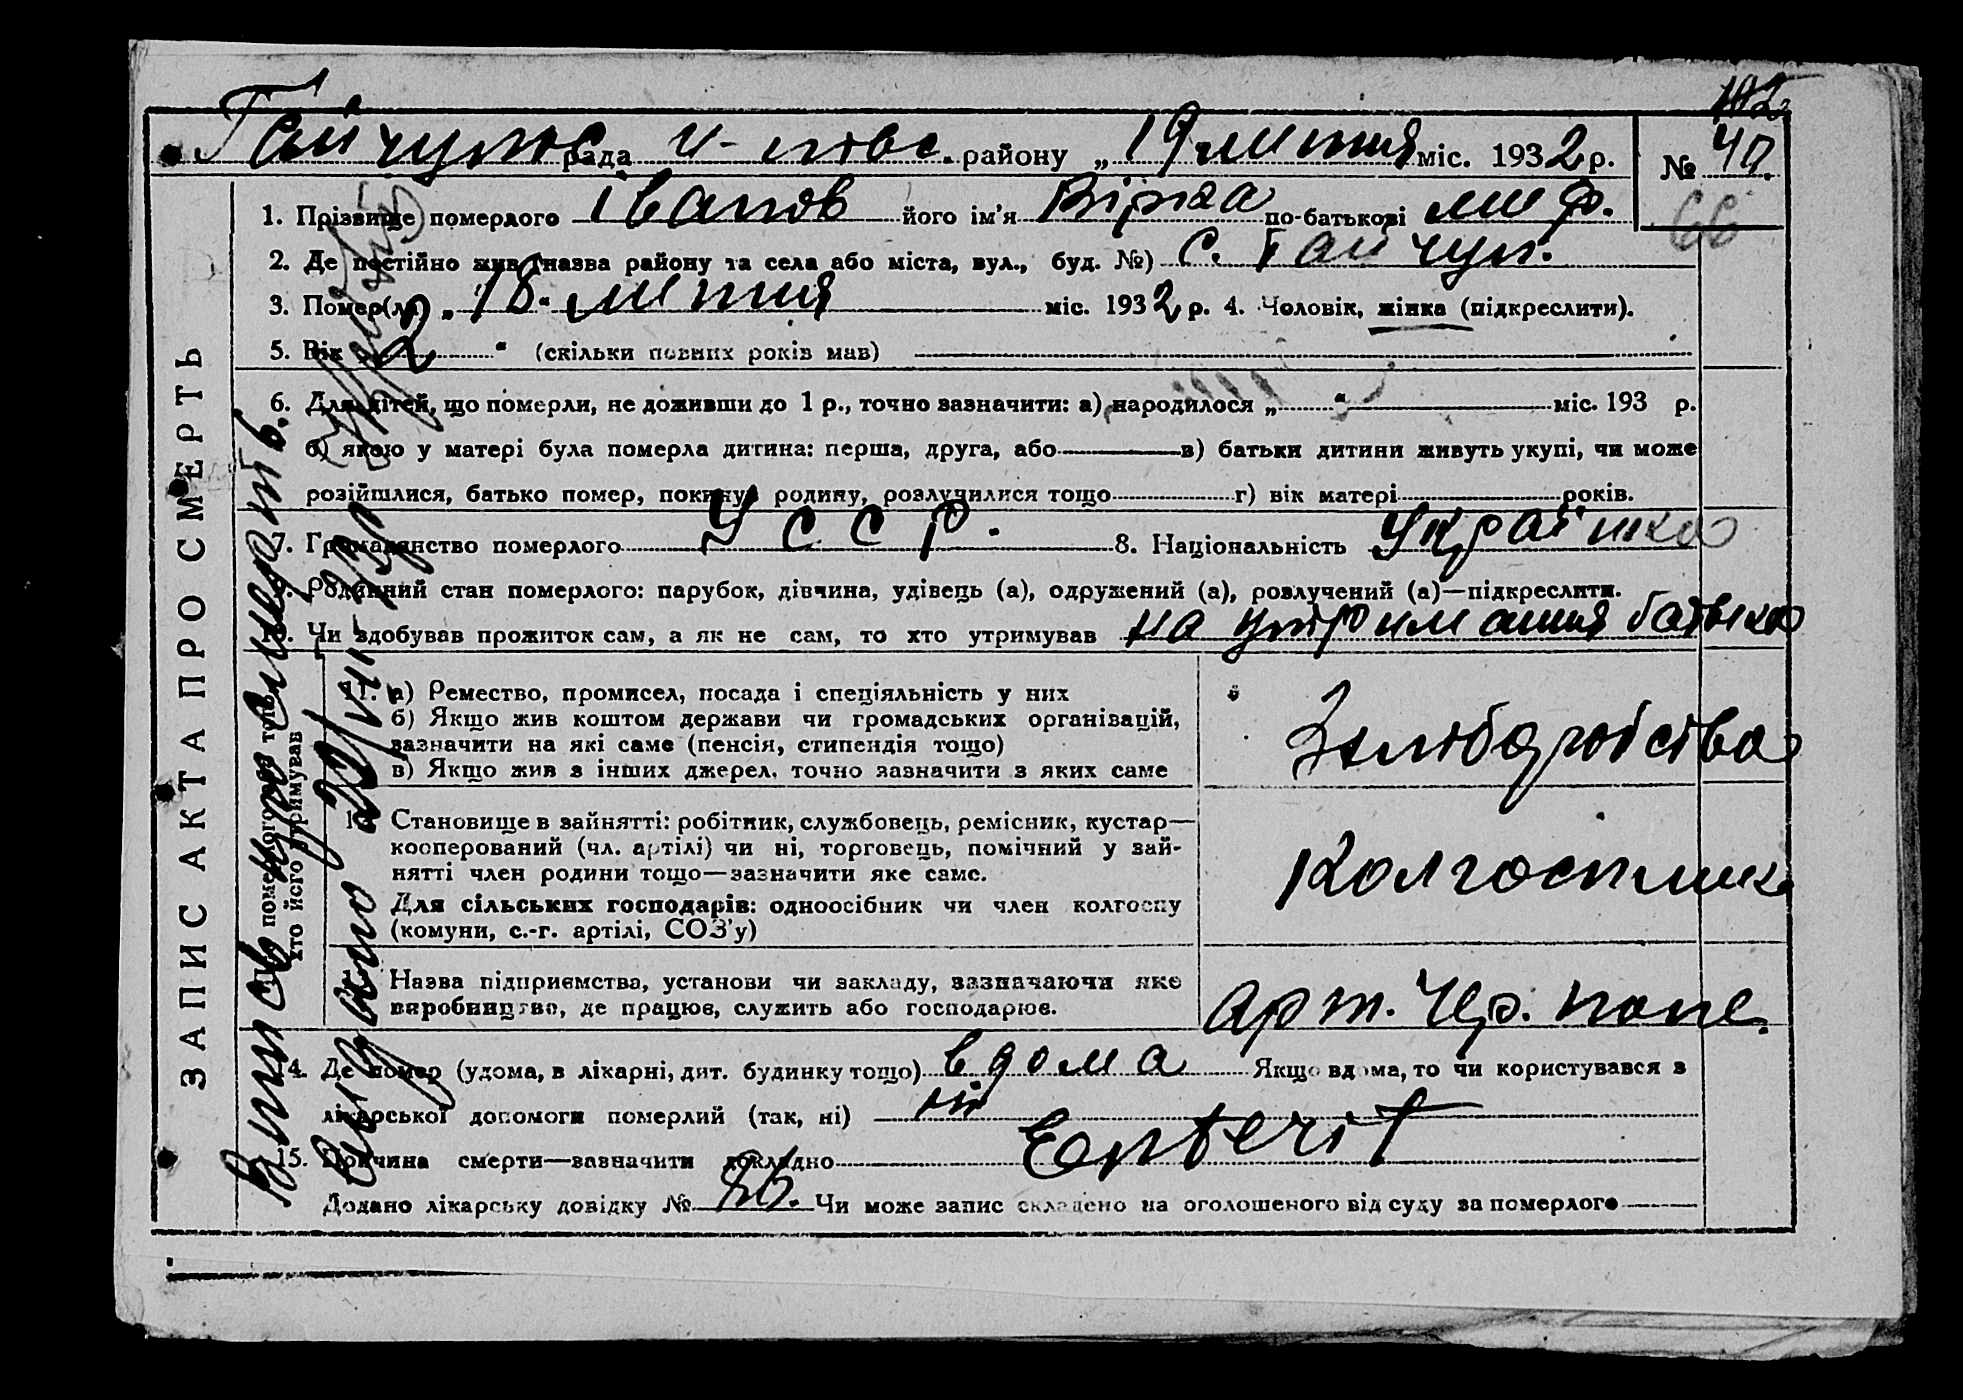 Гайчулов рада район у „ 19 " липня міс. 1932 р. № 40.
66
1. Прізвище померлого Іванов його ім'я Вірка по-батькові
2. Де постійно жив (назва району та села або міста, вул., буд. №) С. Гайчул.
3. Помер(ла) „ 18. липня міс. 1932 р. 4. Чоловік, жінка (підкреслити).
5. Вік 2 " (скільки повних років мав)
6. Для дітей, що померли, не доживши до 1 р., точно зазначити: а) народилося „ " міс. 193 р.
б) якою у матері була померла дитина: перша, друга, або в) батьки дитини живуть укупі, чи може
розійшлися, батько помер, покинув родину, розлучилися тощо г) вік матері років.
7. Громадянство померлого УССР. 8. Національність Українка
9. Родинний стан померлого: парубок, дівчина, удівець (а), одружений (а), розлучений (а)—підкреслити.
10. Чи здобував прожиток сам, а як не сам, то хто утримував на утримання батька
ЗАПИС АКТА ПРО СМЕРТЬ
померлого
хто його утримував
11. а) Ремество, промисел, посада і спеціяльність у них
б) Якщо жив коштом держави чи громадських організацій,
зазначити на які саме (пенсія, стипендія тощо)
в) Якщо жив з інших джерел, точно зазначити з яких саме
Становище в зайнятті: робітник, службовець, ремісник, кустар—
кооперований (чл. артілі) чи ні, торговець, помічний у зай-
нятті член родини тощо—зазначити яке саме.
Для сільських господарів: одноосібник чи член колгоспу
(комуни, с.-г. артілі, СОЗ'у)
Колгоспник
Назва підприємства, установи чи закладу, зазначаючи яке
виробництво, де працює, служить або господарює.
Арт. Чер. поле.
14. Де помер (удома, в лікарні, дит. будинку тощо) вдома Якщо вдома, то чи користувався з
лікарської допомоги померлий (так, ні) ні
15. Причина смерти—зазначити докладно Enterit
Додано лікарську довідку № 86. Чи може запис складено на оголошеного від суду за померлого